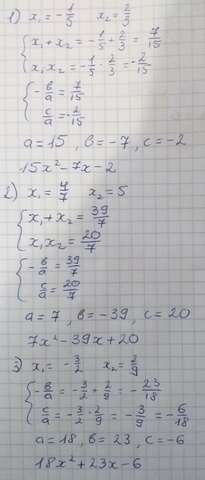 1) x₁ = -1/5   x₂ = 2/3
{ x₁ + x₂ = -1/5 + 2/3 = 7/15
x₁x₂ = -1/5 · 2/3 = -2/15
{ -в/а = 7/15
с/а = -2/15
а = 15 , в = -7 , с = -2
15x² - 7x - 2
2) x₁ = 4/7   x₂ = 5
{ x₁ + x₂ = 39/7
x₁x₂ = 20/7
{ -в/а = 39/7
с/а = 20/7
а = 7 , в = -39 , с = 20
7x² - 39x + 20
3) x₁ = -3/2   x₂ = 2/9
{ -в/а = -3/2 + 2/9 = -23/18
с/а = -3/2 · 2/9 = -3/9 = -6/18
а = 18 , в = 23 , с = -6
18x² + 23x - 6